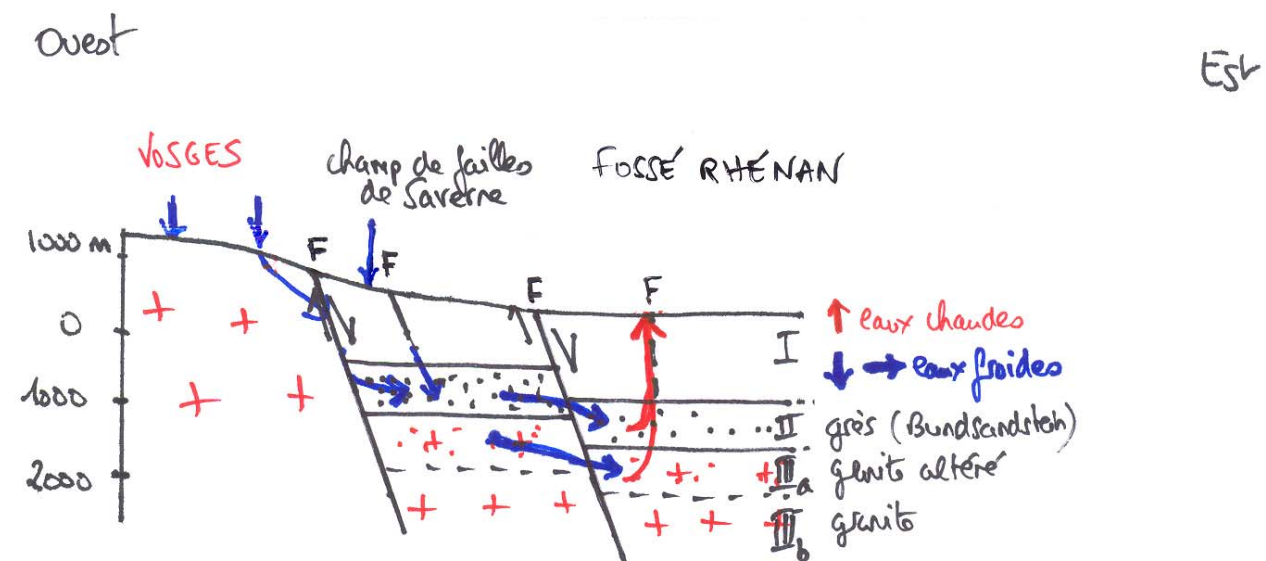 Ouest
Est
VOSGES
champ de failles
de Saverne
FOSSÉ RHÉNAN
1000 m
0
1000
2000
F
F
F
F
I
II
IIIa
IIIb
eaux chaudes
eaux froides
grès (Bundsandstein)
granite altéré
granite